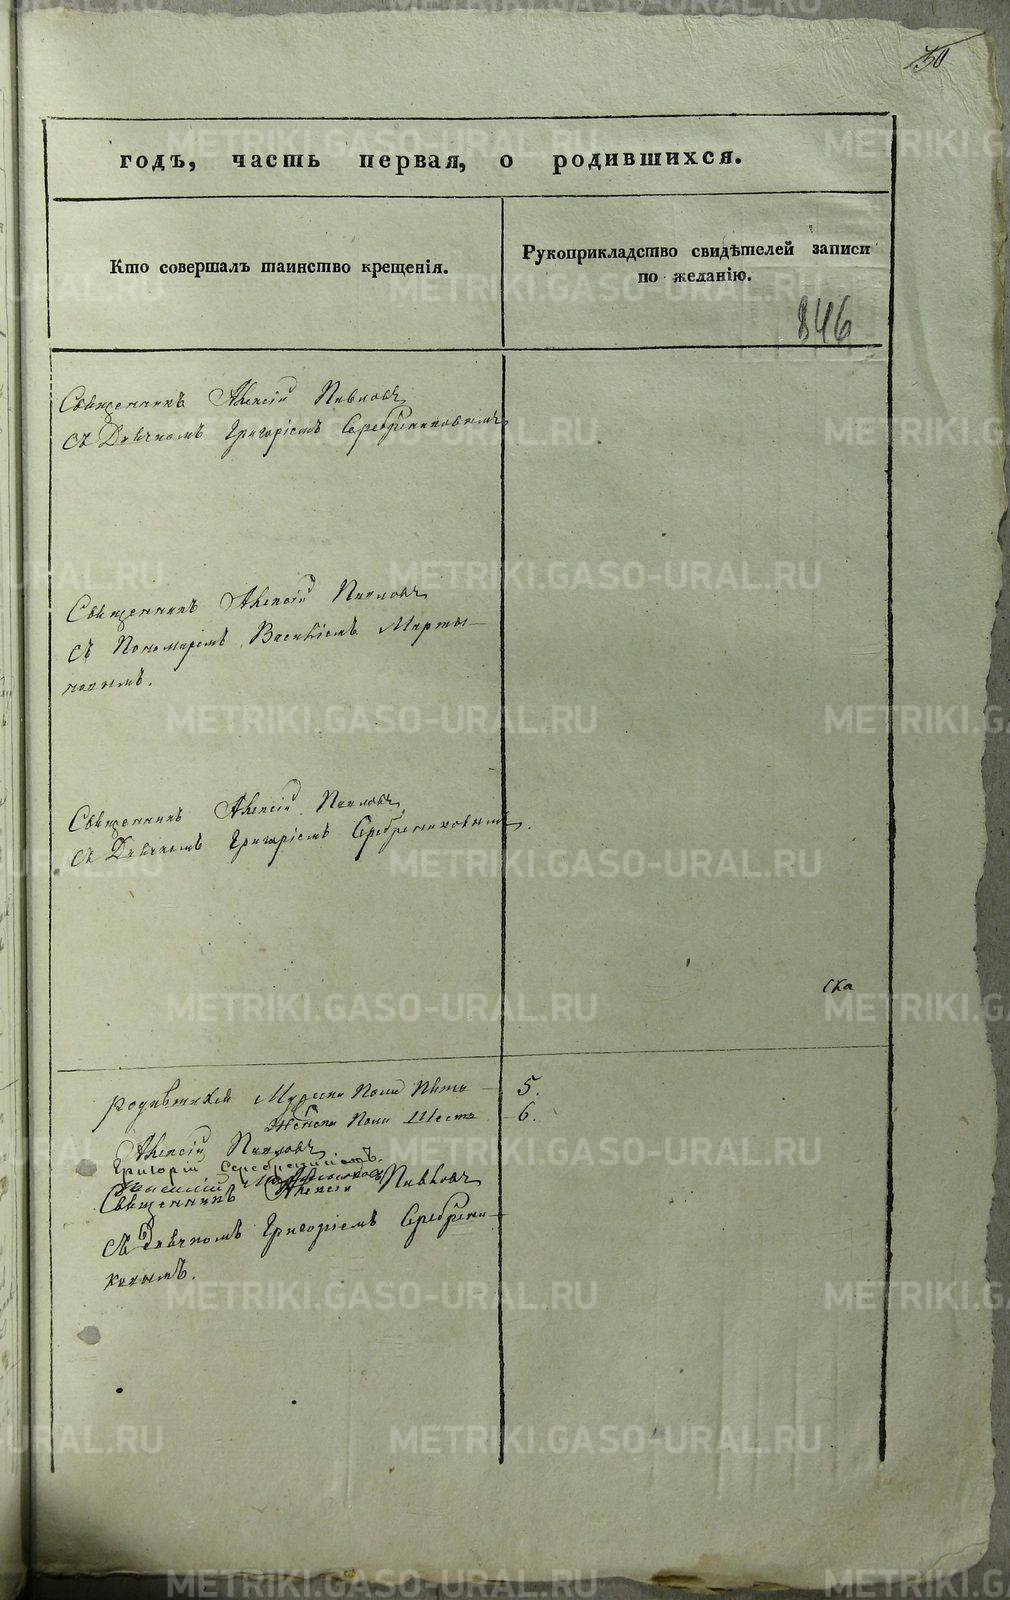 годъ, часть первая, о родившихся.
Кто совершалъ таинство крещенія.
Рукоприкладство свидѣтелей записи
по желанію.
846
Священникъ Алексій Павловъ
съ Дьячкомъ Григоріемъ Серебрениковымъ
Священникъ Алексій Павловъ
съ Пономаремъ Василіемъ Марты-
новымъ.
Священникъ Алексій Павловъ
съ Дьячкомъ Григоріемъ Серебрениковымъ.
ска
родившихся Муж. Пола Пять – 5.
Женска Пола Шесть – 6.
Алексій Павловъ
Григорій
Василій
Священникъ Алексій Павловъ
съ Дьячкомъ Григоріемъ Серебрени-
ковымъ.
METRIKI.GASO-URAL.RU